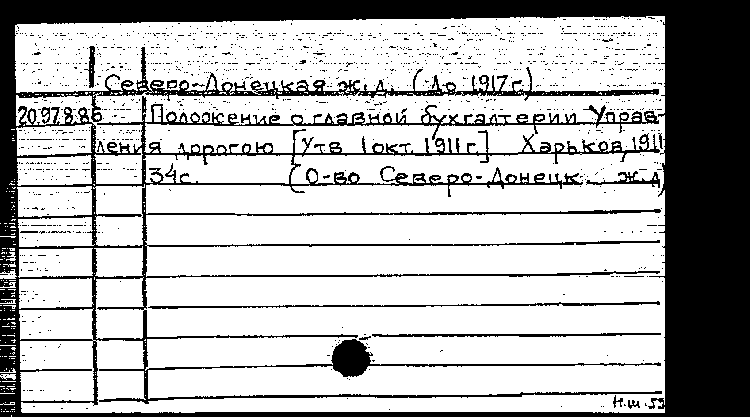 Северо-Донецкая ж.д. (до 1917г.)
20.97.8.86 Положение о главной бухгалтерии Управ-
ления дорогою [Утв 1 окт. 1911г.] Харьков, 1911
34с. (О-во Северо-Донецк. ж.д)
Н.ш.53